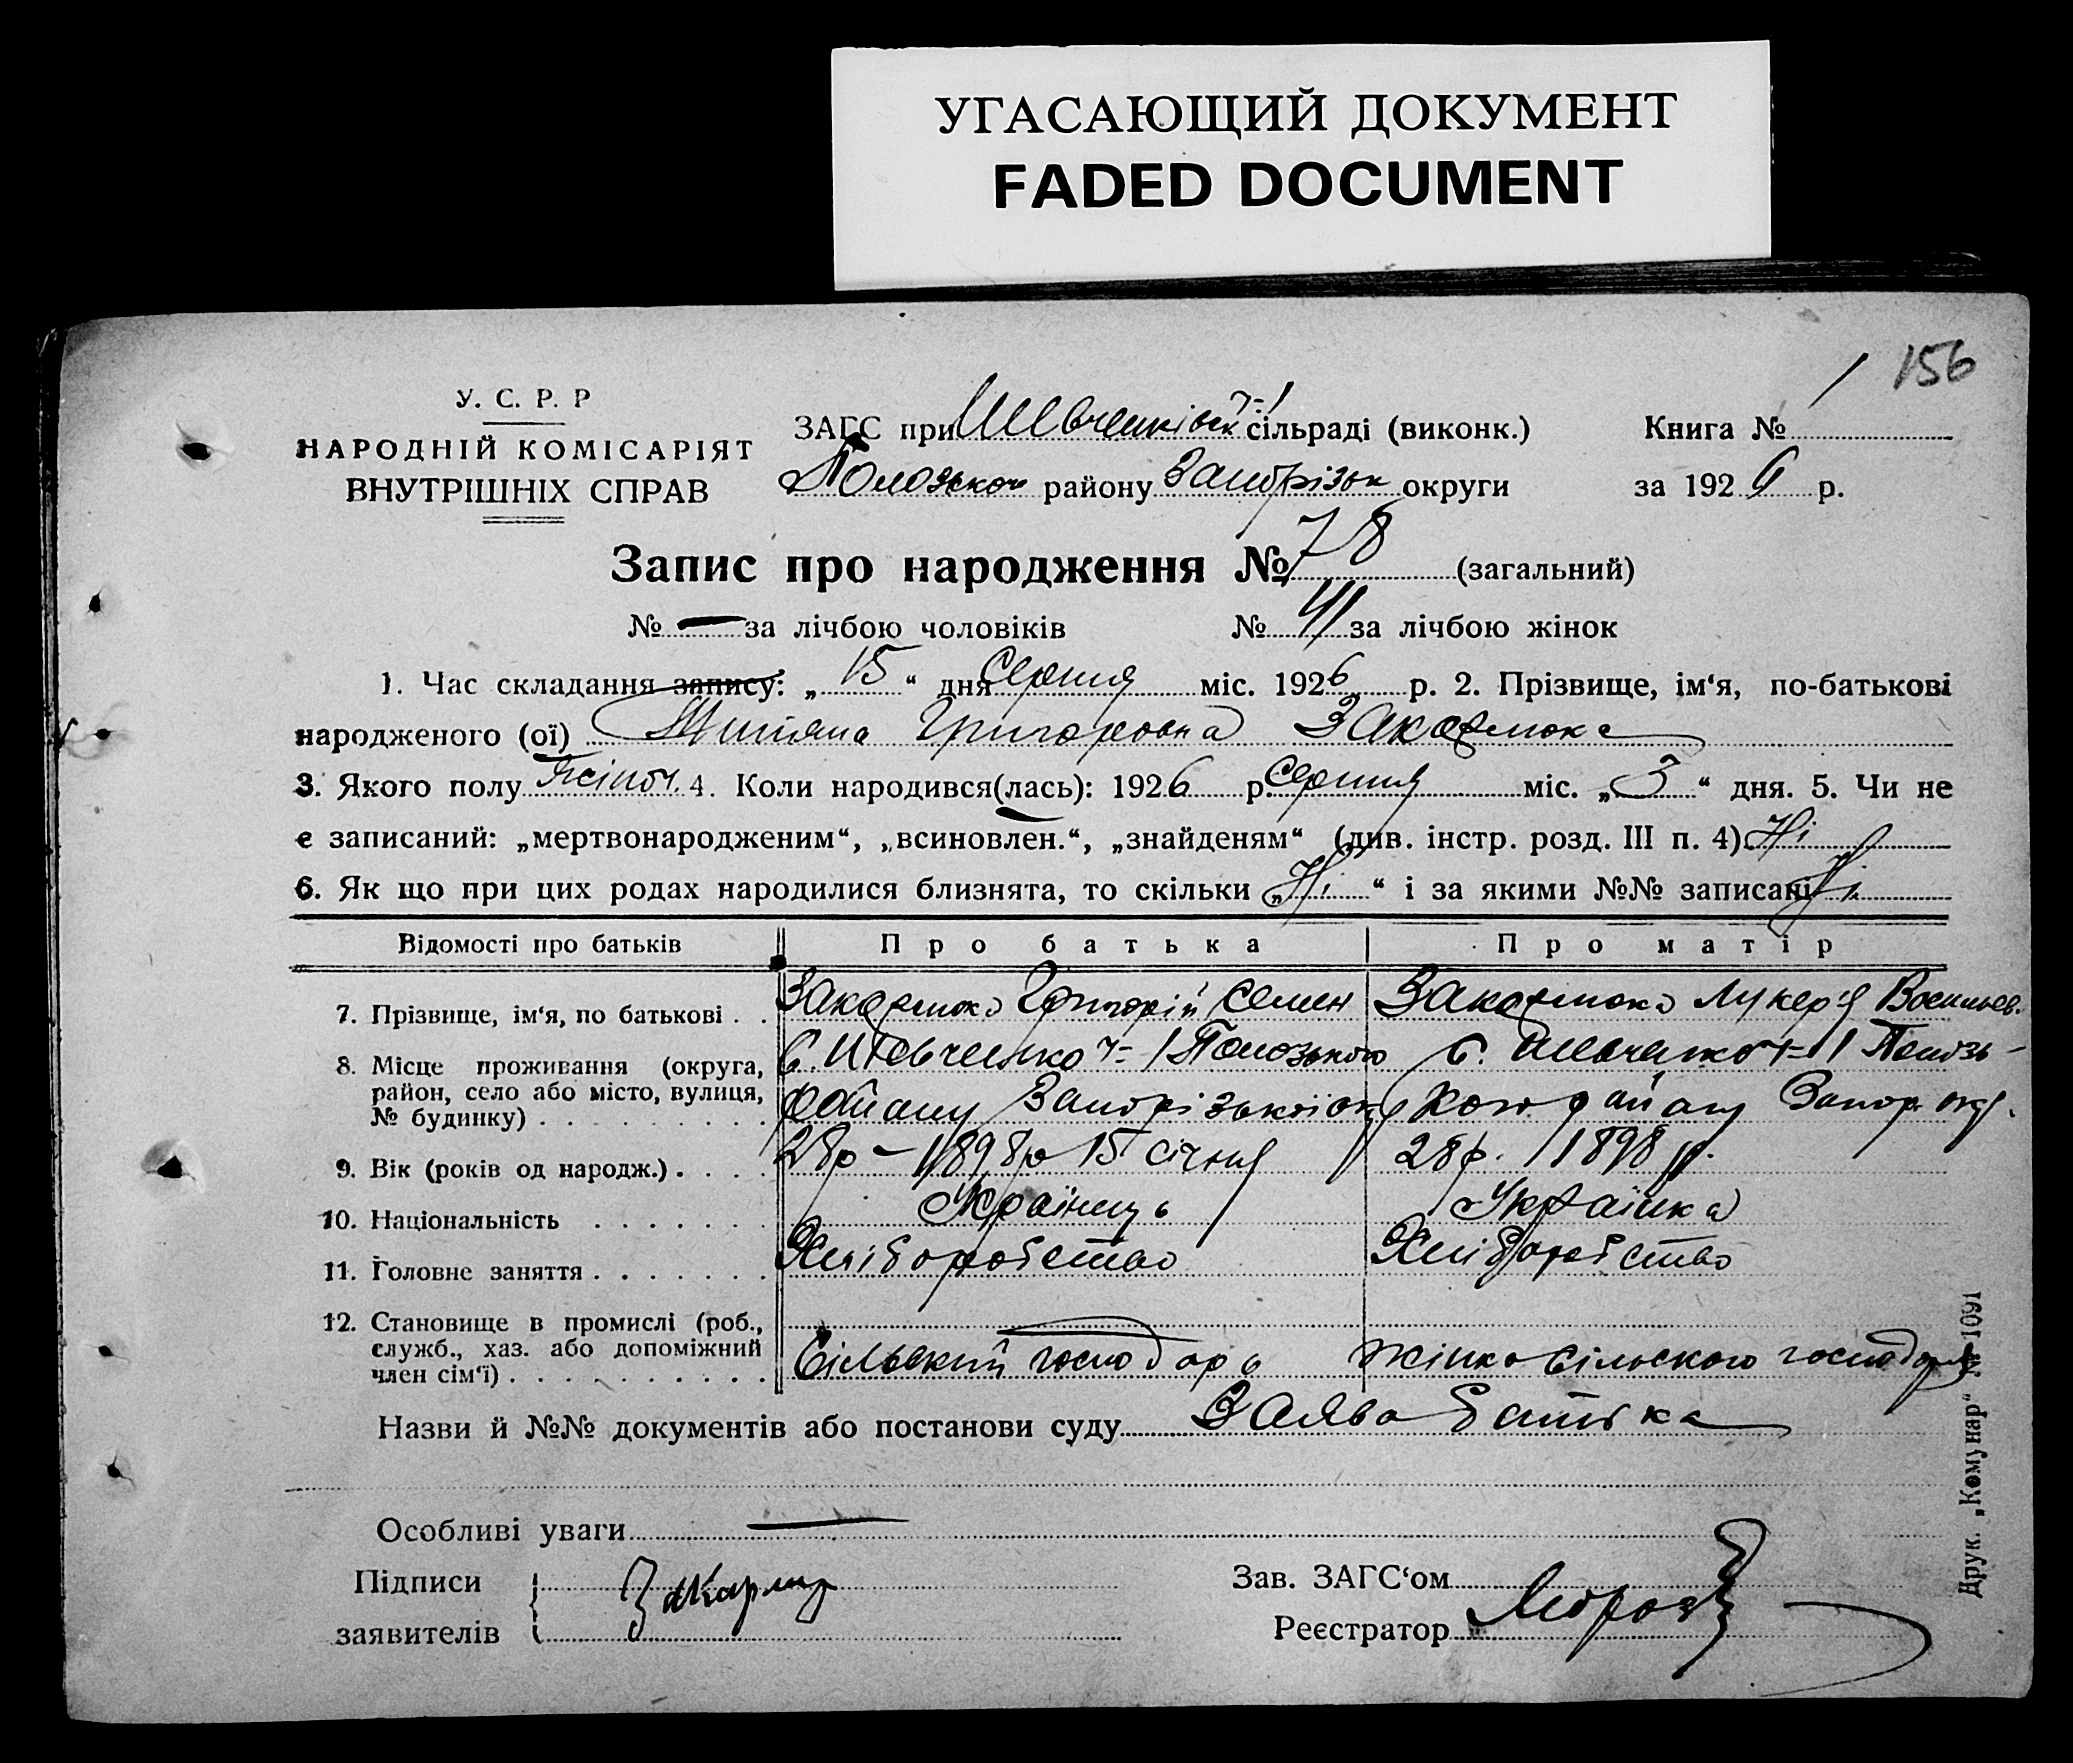 УГАСАЮЩИЙ ДОКУМЕНТ
FADED DOCUMENT
156
У. С. Р. Р
НАРОДНІЙ КОМІСАРІЯТ
ВНУТРІШНІХ СПРАВ
ЗАГС при Шевченківськ ч-1 сільраді (виконк.)
Пологськом району Запорізьк округи
Книга № 1
за 1926 р.
Запис про народження № 78 (загальний)
№ — за лічбою чоловіків № 41 за лічбою жінок
1. Час складання запису: „ 15 “ дня Серпня міс. 1926 р. 2. Прізвище, ім‘я, по-батькові
народженого (ої) Григоровна
3. Якого полу Жіноч. 4. Коли народився(лась): 1926 р. Серпня міс. „ 3 “ дня. 5. Чи не
є записаний: „мертвонародженим“, „всиновлен.“, „знайденям“ (див. інстр. розд. III п. 4) Ні
6. Як що при цих родах народилися близнята, то скільки „ Ні “ і за якими №№ записані Ні
Відомості про батьків Про батька Про матір
7. Прізвище, ім‘я, по батькові . . Григорій Семен Лукер'я Васильев.
8. Місце проживання (округа, район, село або місто, вулиця, № будинку) . . . . . . . . .
С. Шевченко ч-1 Пологського
району Запорізької окр
с. Шевченко ч-1 Пологсь-
кого району Запор. окр.
9. Вік (років од народж.) . . . . 28р – 1898р 15 січня 28р. 1898 р.
10. Національність . . . . . . . Українець Українка
11. Головне заняття . . . . . . . Хліборобство Хліборобство
12. Становище в промислі (роб., служб., хаз. або допоміжний член сім‘ї) . . . . . . . . . .
Сільський господарь жінка сільского господаря
Назви й №№ документів або постанови суду Заява батька
Особливі уваги —
Підписи
заявителів
Зав. ЗАГС‘ом
Реєстратор
Друк. „Комунар“ № 1091